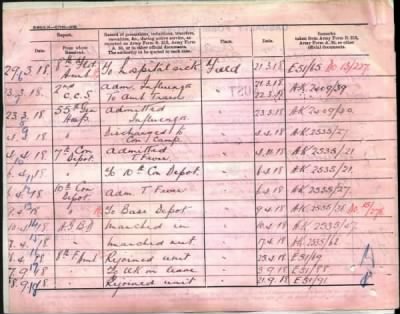 Date.
Report.
From whom Received.
Record of promotions, reductions, transfers, casualties, &c., during active service, as reported on Army Form B. 213, Army Form A. 36, or in other official documents. The authority to be quoted in each case.
Place.
Date.
Remarks taken from Army Form B. 213, Army Form A. 36, or other official documents.
29.3.18 8th Fld Amb To hospital sick Field 21.3.18 E51/65
.18 2nd C.C.S Adm. Influenza 21.3.18 A.K 2009/39
To Amb Train 22.3.18
23.3.18 55th Gen Hosp. Admitted Influenza " 23.3.18 A.K
4. .18 " Discharged to Con Camp " .4.18 A.K 2535/27
4.4.18 7th Con Depot. Admitted T Fever " 4.4.18 A.K 2535/21.
6.4.18 " To 10th Con Depot " 6.4.18 A.K 2535/21
6.4.18 10th Con Depot. Adm. T Fever " 6.4.18 A.K 2535/27.
.4.18 " To Base Depot " 9.4.18 A.K 2535/
10.4.18 A.G.B.D Marched in " 10.4.18 A.K 2535/
.18 " Marched out " 17.4.18 A.K 2535/62
.18 8th F Amb Rejoined unit " .4.18 E51/69
7.9.18 " To UK on leave " 3.9.18 E51/88
28.9.18 " Rejoined unit " 21.9.18 E51/91